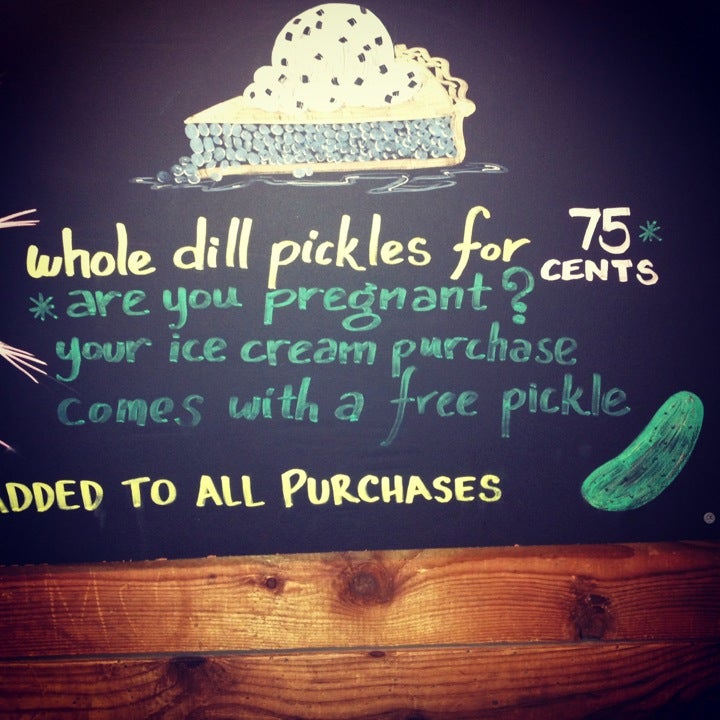 whole dill pickles for 75 CENTS *
* are you pregnant?
your ice cream purchase
comes with a free pickle
ADDED TO ALL PURCHASES